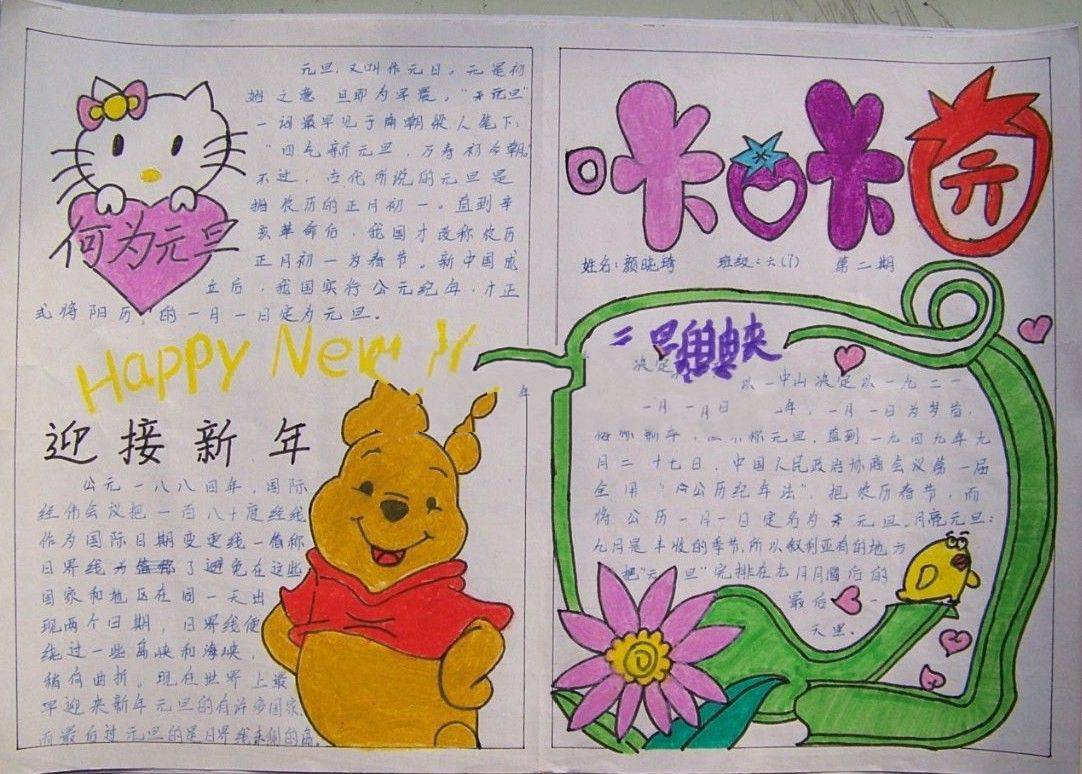 元旦，又叫作元日。元是初
始之意 旦即为早晨。"元旦"
一词最早见于南朝 人笔下：
"四气新元旦，万寿初今朝。"
不过，当代所说的元旦是
指农历的正月初一。直到辛
亥革命后，我国才改称农历
正月初一为春节。新中国成
立后，我国实行公元纪年，才正
式将阳历 的一月一日定为元旦。
何为元旦
Happy New
迎接新年
公元一八八四年，国际
经 会议把一百八十度经线
作为国际日期变更线一俗称
日界线 了避免在这些
国家和地区在同一天出
现两个日期，日界线便
绕过一些 峡和海峡，
稍有曲折。现在世界上最
早迎来新年元旦的有许多国家，
而最后过元旦的是日界线东侧的 。
咔口卡园
元
姓名：颜晓琦 班级：六(7) 第二期
元旦 典故
决定
年 以 中山决定以一九二一
一月一日 年，一月一日为岁首，
新年， 称元旦，直到一九四九年九
月二十七日，中国人民政府协商会议第一届
全 用"公历纪年法"，把农历春节，而
将公历一月一日定名为元旦。月亮元旦：
九月是丰收的季节，所以叙利亚有的地方
把"元旦"安排在九月月圆后的
最后一
天里。